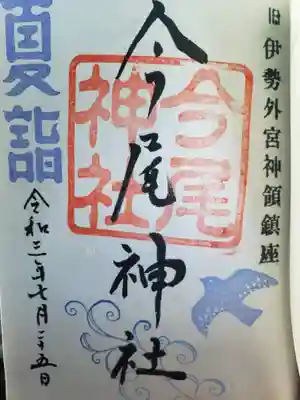 旧伊勢外宮神領鎮座
今尾神社
今尾神社
夏詣
令和三年七月二十五日